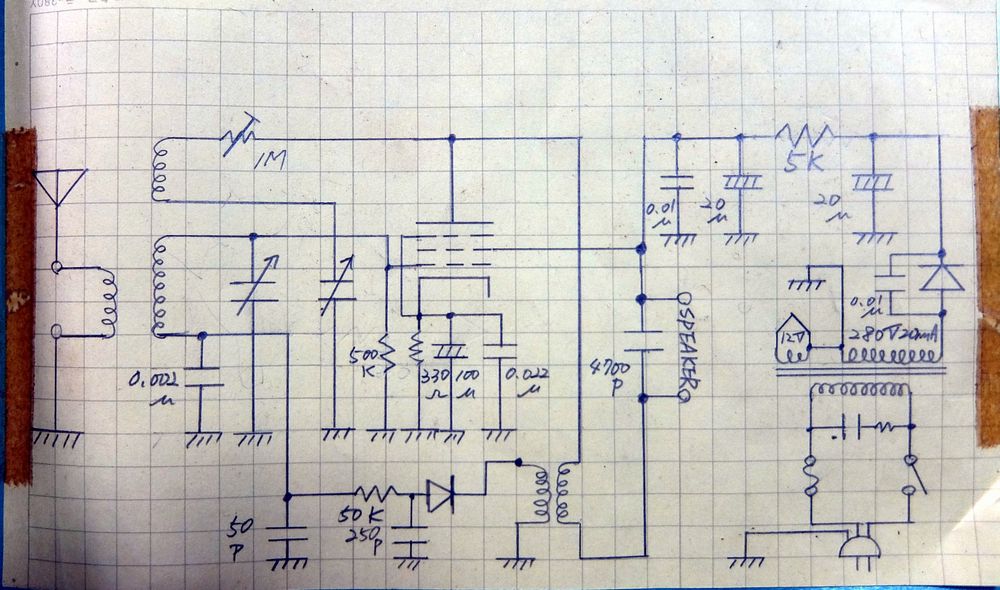 1M
5K
0.01
μ
20
μ
20
μ
0.01
μ
12V
280V20mA
SPEAKER
4700
P
500
K
330
Ω
100
μ
0.022
μ
0.002
μ
50
P
50K
250
P